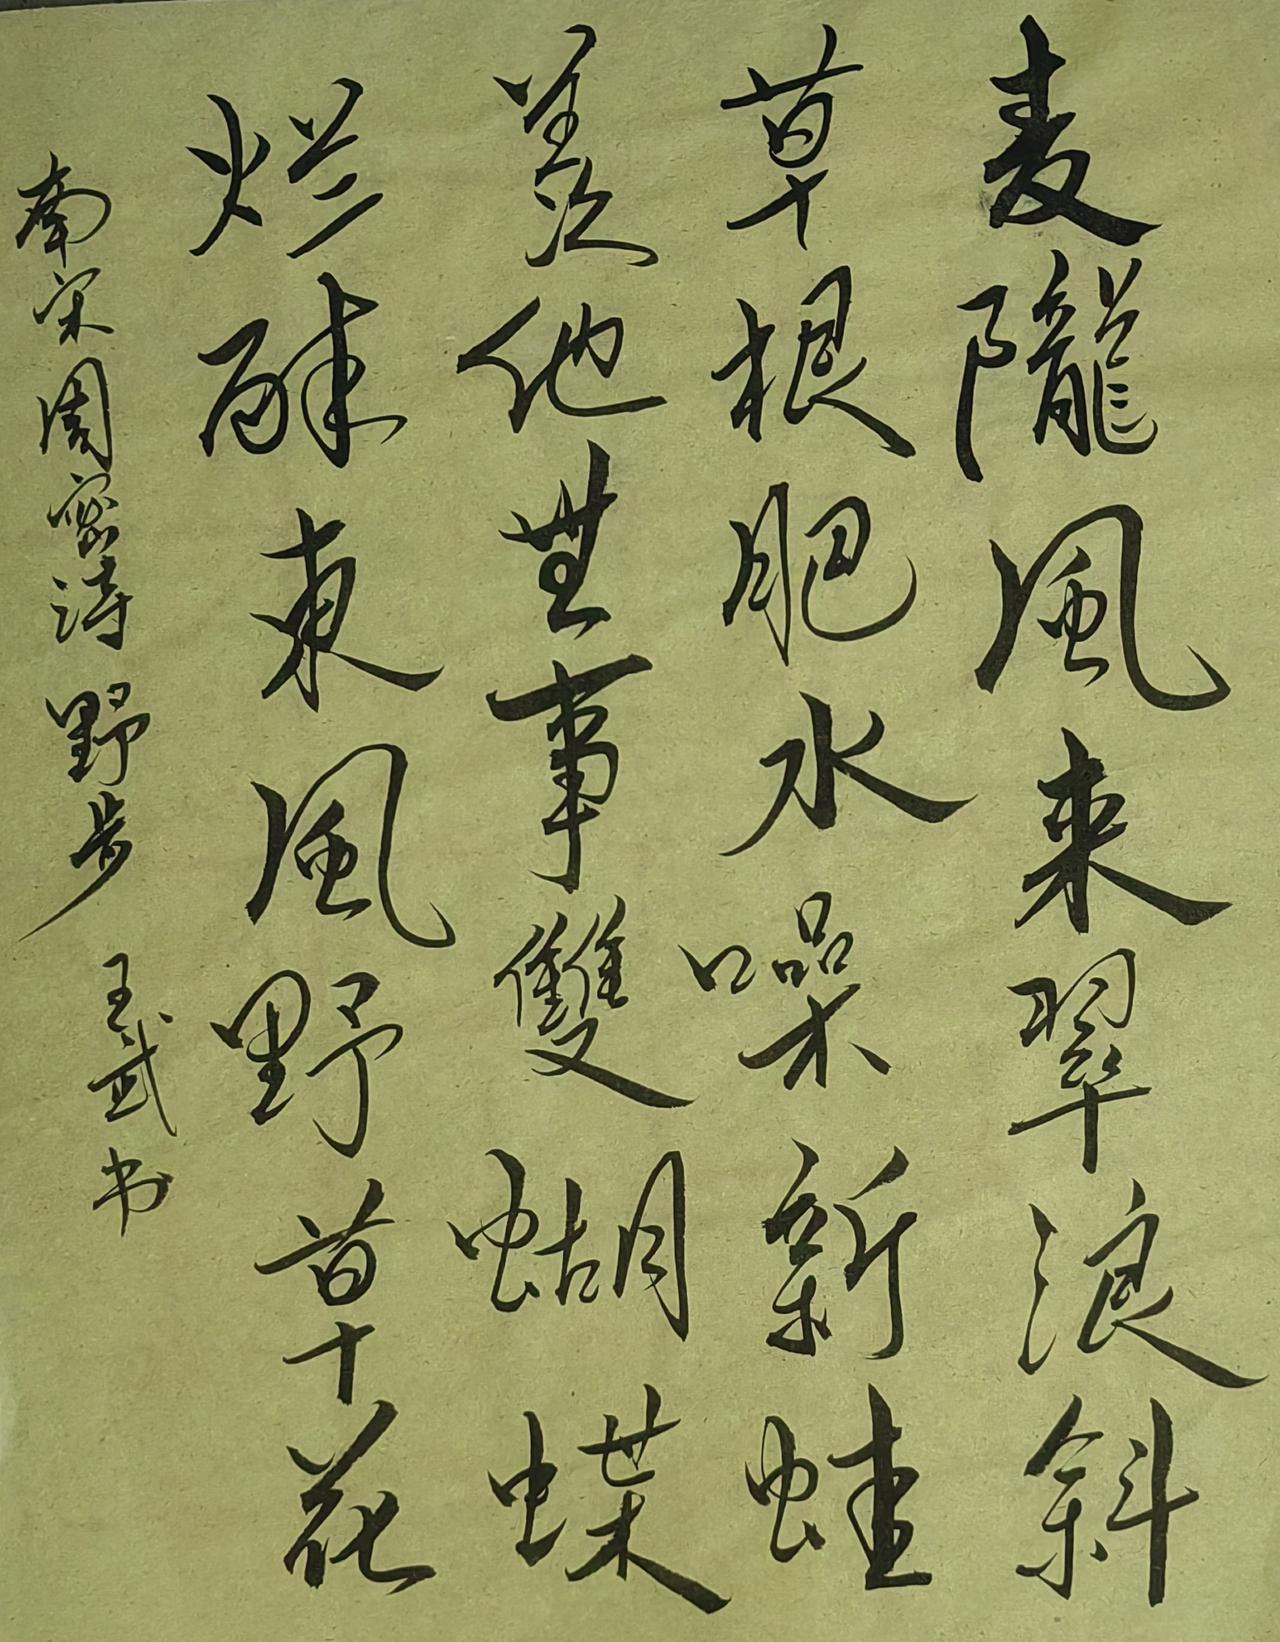 麦隴風来翠浪斜
草根肥水噪新蛙
羡他無事雙蝴蝶
烂醉東風野草花
南宋周密诗野步 王武书